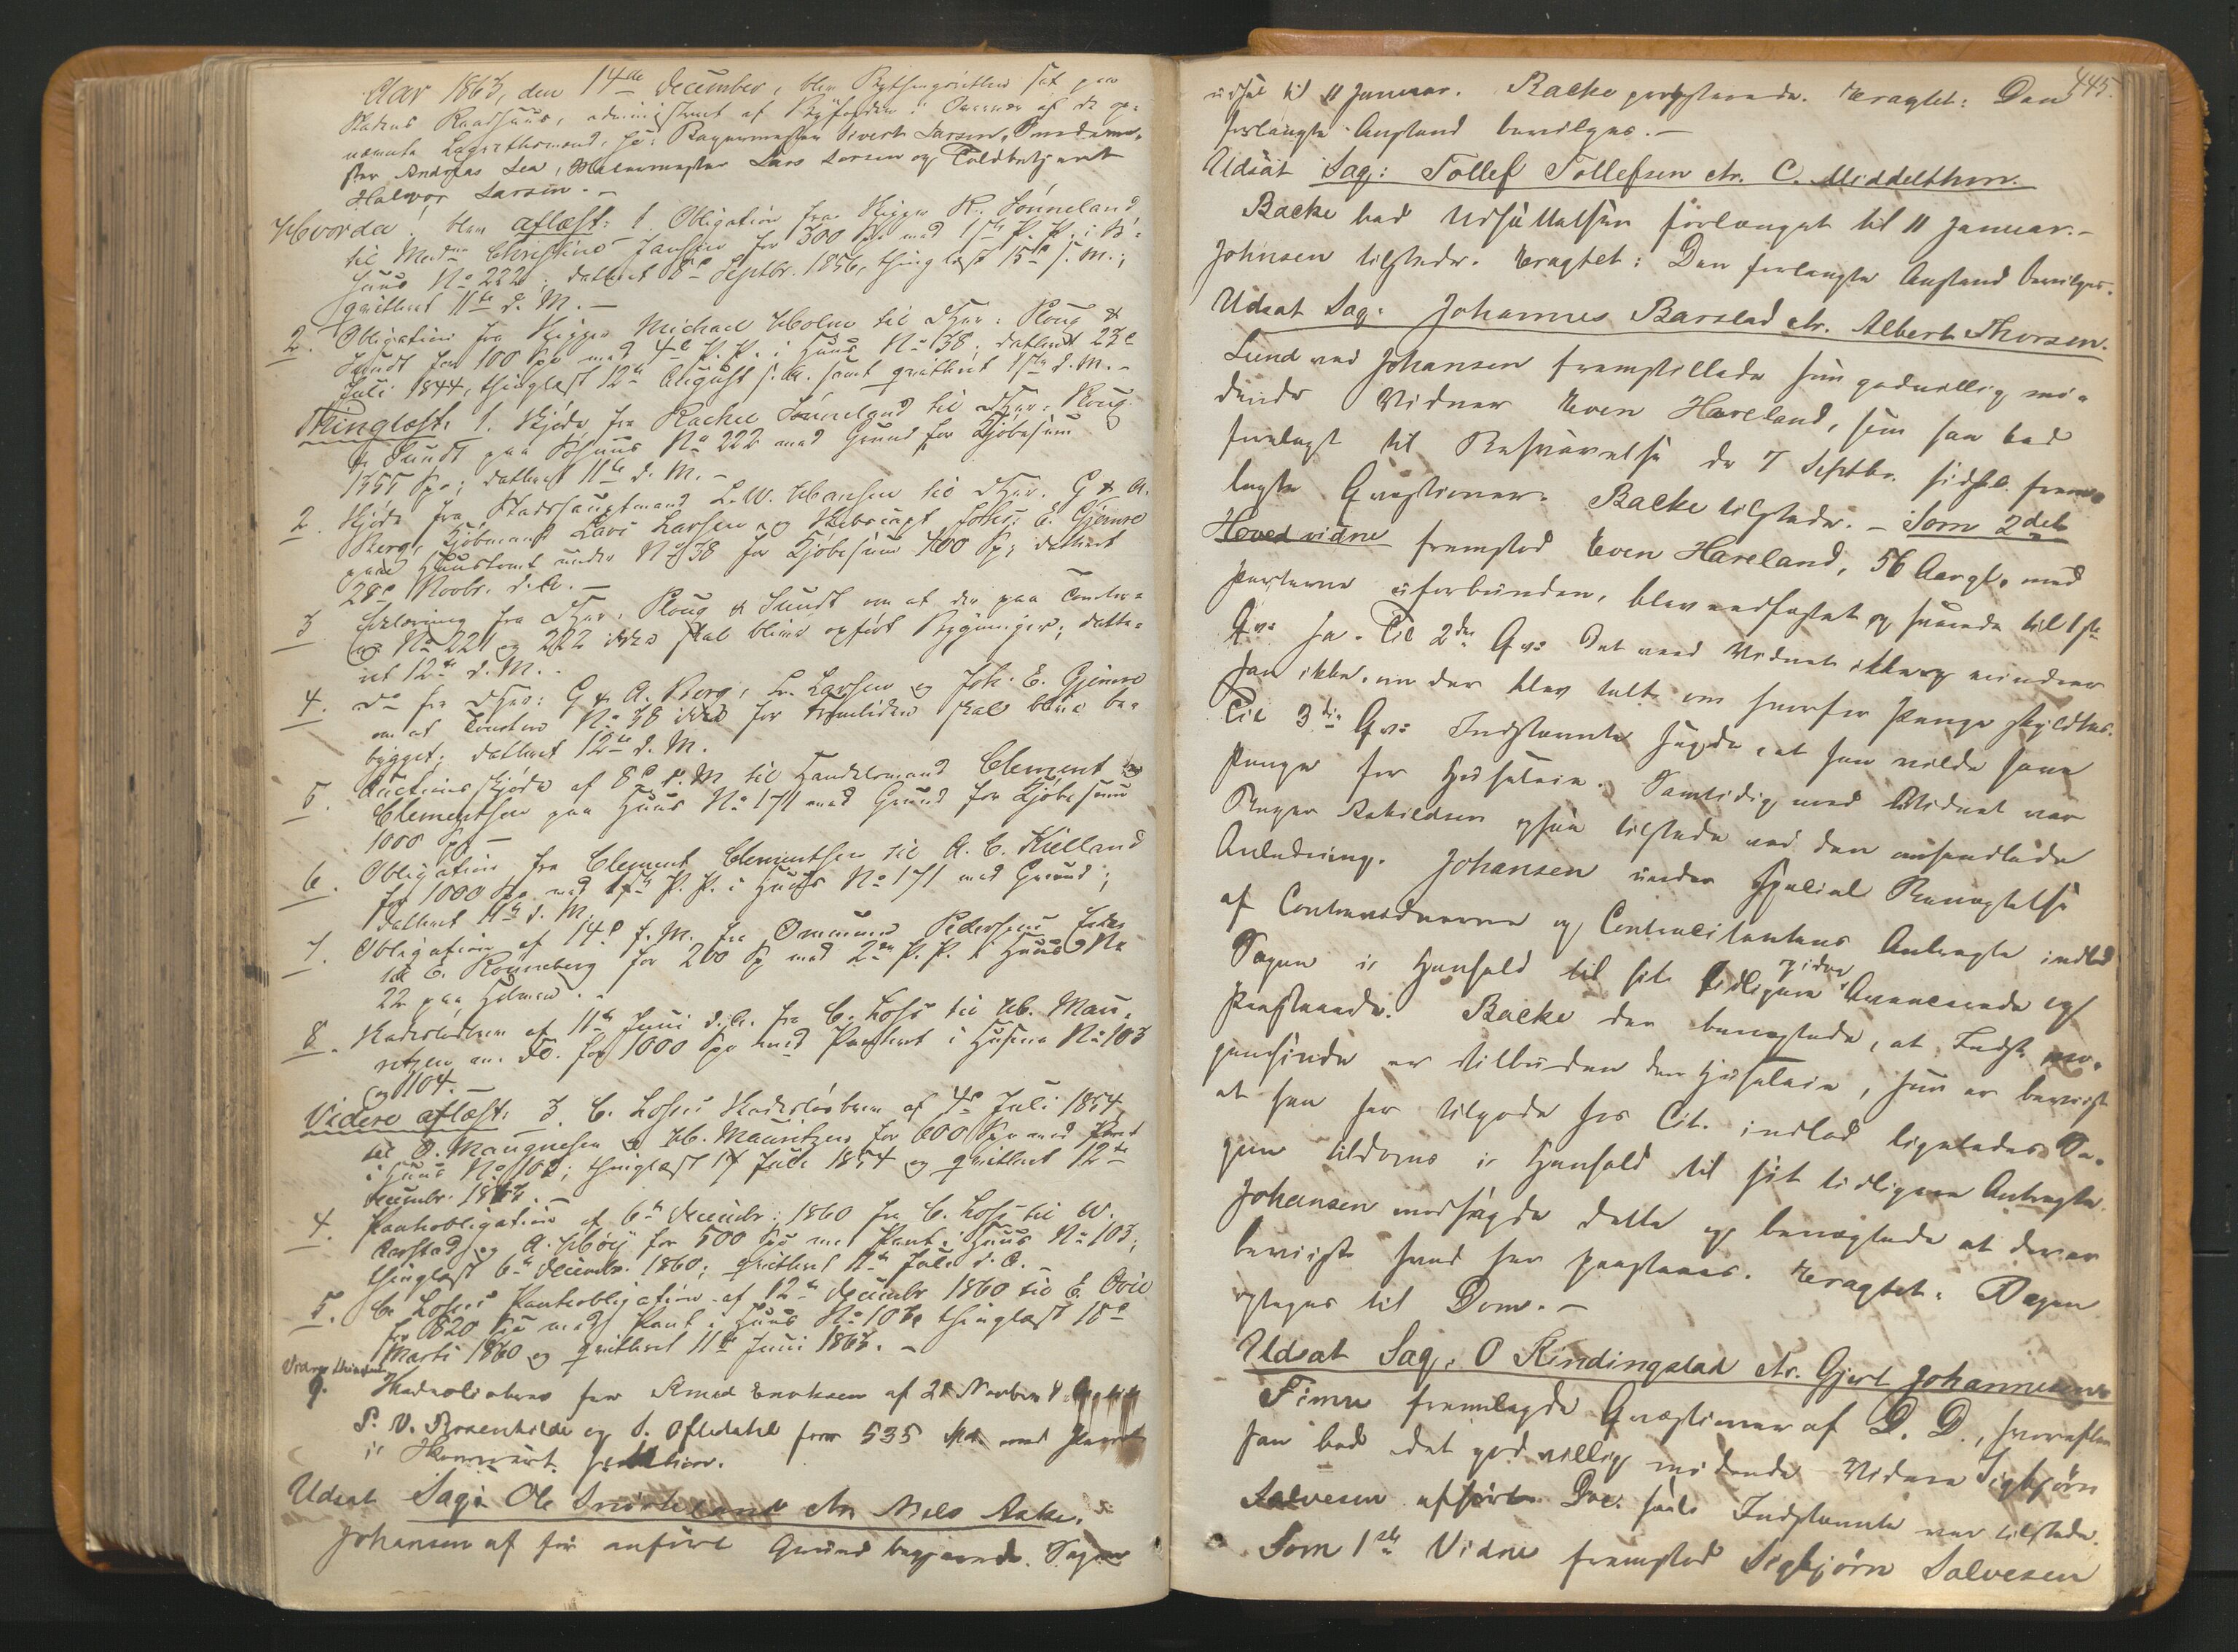 Aar 1863, den 14de December, blev Bythingsretten sat paa
Stadens Raadhuus, administreret af Byfogden i Overvær af de op-
nævnte Lagrettesmænd, sc: Bagermester Sivert Larsen, Smedeme-
ster Andreas Lea, Malermester Lars Larsen og Toldbetjent
Halvor Larsen. -
Hvorda blev aflæst: 1. Obligation fra Skipper R. Sønneland
til Madm Christine Jansen for 300 Spd med 1ste P. P. i Sø-
huus No 222, dateret 8de Septbr. 1856, thinglæst 15de s. M.,
qvitteret 11te d. M. -
2. Obligation fra Skipper Michael Holm til DHrr: Ploug &
Sundt for 100 Spd med 4de P. P. i Huus No 38, dateret 23de
Juli 1844, thinglæst 12te August s. A. samt qvitteret 1ste d. M. -
Thinglæst: 1. Skjøde fra Rachel Sønneland til DHrr. Ploug
& Sundt paa Søhuus No 222 med Grund for Kjøbesum
1355 Spd; dateret 11te d. M. -
2. Skjøde fra Stadshauptmand L. W. Hansen til DHrr. G & A.
Berg, Kjøbmand Lars Larsen og Skibscapt Johs: E. Gjemre
paa Huustomt under No 38 for Kjøbesum 400 Spd; dateret
28de Novbr. d. A. -
3 Erklæring fra DHrr. Ploug & Sundt om at der paa Tomter-
ne No 221 og 222 ikke skal blive opført Bygninger; date-
ret 12te d. M. -
4. Do fra DHrr: G & A. Berg, L. Larsen og Joh. E. Gjemre
om at Tomten No 38 ikke for Fremtiden skal blive be-
bygget; dateret 12te d. M.
5. Auctionsskjøde af 8de d. M til Handelsmand Clement
Clementsen paa Huus No 171 med Grund for Kjøbesum
1000 Spd -
6. Obligation fra Clement Clementsen til A. C. Kielland
for 1000 Spd med 1ste P. P. i Huus No 171 med Grund;
dateret 11te d. M.
7. Obligation af 14de d. M. fra Ommund Pedersen
til E. Rønneberg for 200 Spd med 2den P. P. i Huus No
22 paa Holmen. -
8. Skadesløsbrev af 11te Juni d. A. fra C. Loss til H. Mau-
ritzen for 1000 Spd med Panteret i Husene No 103
og 104. -
Videre aflæst: 3. C. Loses Skadesløsbrev af 4de Juli 1854
til O. Maugnesen og H. Mauritzen for 600 Spd med Pant
i Huus No 103; thinglæst 17 Juli 1854 og qvitteret 12te
Decembr. 1863. -
4. Panteobligation af 6te Decembr. 1860 fra C. Loss til W.
Aarstad og A. Høy for 500 Spd med Pant i Huus No 103;
thinglæst 6te Decembr. 1860; qvitteret 11te Juli d. A. -
5. C. Loses Panteobligation af 12te Decembr 1860 til E. Ovie
for 820 Spd med Pant i Huus No 103 thinglæst 18de
Marts 1860 og qvitteret 11te Juni 1863. -
Videre thinglæst
9. Skadesløsbrev fra Knud Enoksen af 21 Novbr
P. V. Rosenkilde og S. Oftedahl for 535 Spd. med Pant
i
Udsat Sag: Ole Snørteland ctr. Niels Aske.
Johansen af før anført Grund begjærede Sagen
445.
udsat til 11 Januar. Backe protesterede. Eragtet: Den
forlangte Anstand bevilges. -
Udsat Sag: Tollef Tollefsen ctr. C. Middelthon.
Backe bad Udsættelsen forlænget til 11 Januar. -
Johnsen tilstede. Eragtet: Den forlangte Anstand bevilges.
Udsat Sag: Johannes Barstad ctr. Albert Thorsen.
Lund ved Johansen fremstillede som godvillig mø-
dende Vidner Even Hareland, som han bad
forelagt til Besvarelse de 7 Septbr. sidstl. frem-
lagte Qvæstioner. Backe tilstede. - Som 2det
Hovedvidne fremstod Even Hareland, 56 Aar gl. med
Parterne uforbunden, blev eedfæstet og svarede til 1ste
Qv: Ja. Til 2det Qv: Det veed Vidnet ikke og mindes
han ikke, om der blev talt om hvorfor Penge skyldtes.
Til 3die Qv: Indstævnte sagde, at han vilde have
Penge for Huusleie. Samtidig med Vidnet var
Birger Eskildsen ogsaa tilstede ved den omhandlede
Anledning. Johansen under Special Benægtelse
af Contraordrerne og Contracitantens Anbragte indlod
Sagen i Henhold til sit tidligere Avancerede og
Paastaaede. Backe der benægtede, at Indst. no-
gensinde er tilbuden den Huusleie, som er beviist
at han har tilgode hos Cit. indlod ligeledes Sa-
gen tildoms i Henhold til sit tidligere Anbragte.
Johansen modsagde dette og benægtede at der er
beviist hvad her paastaaes. Eragtet: Sagen
optages til Dom. -
Udsat Sag: O Kindingstad ctr. Gjert Johannesen
Finne fremlagde Qvæstioner af D. D., hvorefter
han bad det godvillig mødende Vidne Sigbjørn
Salvesen afhørt. Proc. samt Indstævnte var tilstede.
Som 1ste Vidne fremstod Sigbjørn Salvesen